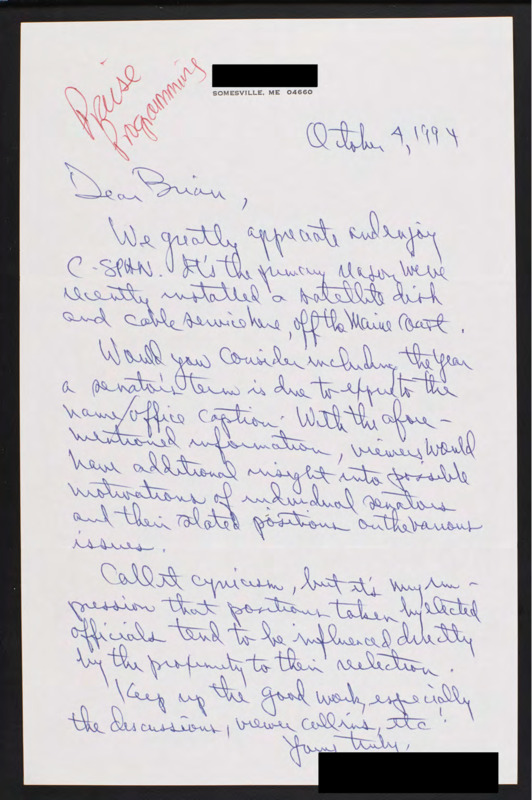 Praise
Programming
SOMESVILLE, ME 04660
October 4, 1994
Dear Brian,
We greatly appreciate and enjoy
C-SPAN. It's the primary reason we've
recently installed a satellite dish
and cable service here, off the Maine Coast.
Would you consider including the year
a senator's term is due to expire to the
name/office caption. With the afore-
mentioned information, viewers would
have additional insight into possible
motivations of individual senators
and their stated positions on the various
issues.
Call it cynicism, but it's my im-
pression that positions taken by elected
officials tend to be influenced directly
by the proximity to their reelection.
Keep up the good work, especially
the discussions, viewer call ins, etc!
Yours truly,